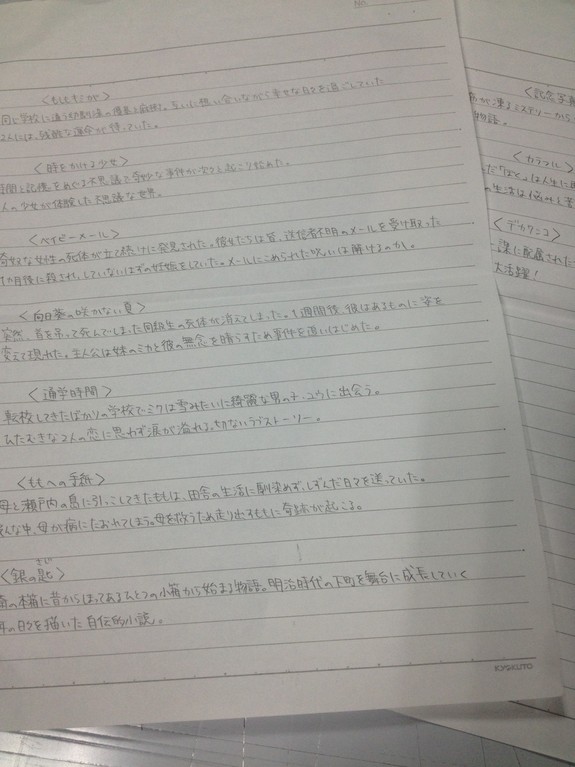 No.
<もしもキミが>
同じ学校に通う
互いに想い合いながら幸せな日々を過ごしていた
2人には、残酷な運命が待っていた。
<時をかける少女>
時間と記憶をめぐる不思議で奇妙な事件が次々と起こり始めた。
人の少女が体験した不思議な世界。
<ベイビーメール>
奇妙な女性の死体が立て続けに発見された。彼女たちは皆、送信者不明のメールを受け取った
か月後に殺され、していないはずの妊娠をしていた。メールにこめられた呪いは解けるのか。
<向日葵の咲かない夏>
突然、首を吊って死んでしまった同級生の死体が消えてしまった。1週間後、彼はあるものに姿を
変えて現れた。主人公は妹のミカと彼の無念を晴らすため事件を追いはじめた。
<通学時間>
転校してきたばかりの学校でミクは雪みたいに綺麗な男の子、ユウに出会う。
ひたむきな2人の恋に思わず涙が溢れる、切ないラブストーリー。
<ももへの手紙>
母と瀬戸内の島に引っこしてきたももは、田舎の生活に馴染めず、しずんだ日々を送っていた。
そんな中、母が病にたおれてしまう。母を救うため走り出すももに奇跡が起こる。
さじ
<銀の匙>
斎の本箱に昔からしまってあるひとつの小箱から始まる物語。明治時代の下町を舞台に成長していく
年の日々を描いた自伝的小説。
KYOKUTO
<記念写真
が凍るミステリーから
物語。
<カラフル>
だ「ぼく」は人生に
の生活は悩みと苦
<デカワンコ>
課に配属された
大活躍!